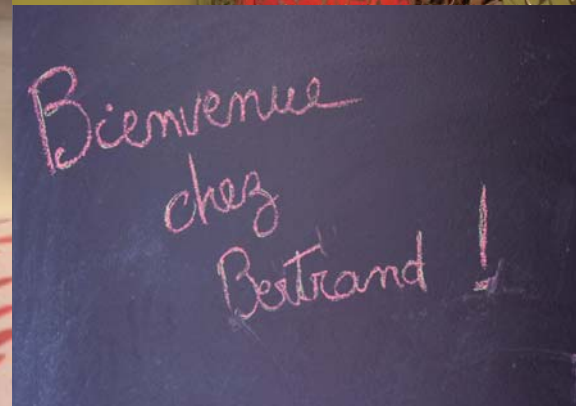 Bienvenue
chez
Bertrand !